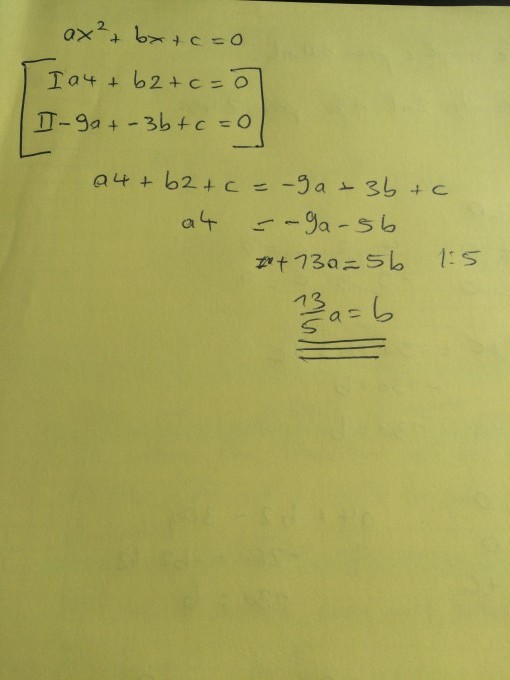 ax² + bx + c = 0
I a4 + b2 + c = 0
II -9a + -3b + c = 0
a4 + b2 + c = -9a - 3b + c
a4 = -9a - 5b
+ 13a = 5b |:5
13/5 a = b